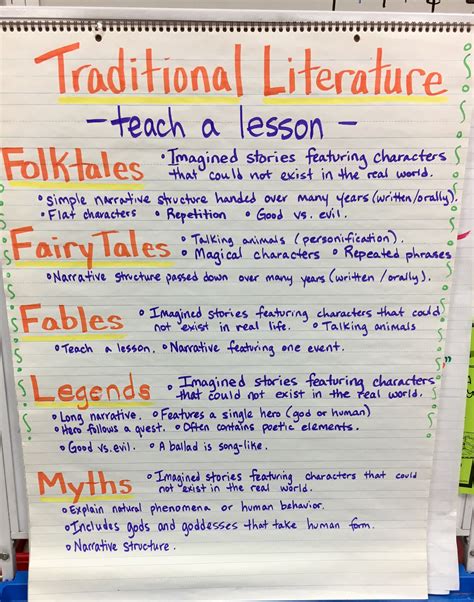 Traditional Literature
- teach a lesson -
Folktales • Imagined stories featuring characters
that could not exist in the real world.
• Simple narrative structure handed over many years (written/orally).
• Flat characters • Repetition • Good vs. evil.
Fairy Tales • Talking animals (personification).
• Magical characters • Repeated phrases
• Narrative structure passed down over many years (written/orally).
Fables • Imagined stories featuring characters that could
not exist in real life. • Talking animals
• Teach a lesson. • Narrative featuring one event.
Legends • Imagined stories featuring characters
that could not exist in the real world.
• Long narrative. • Features a single hero (god or human)
• Hero follows a quest. • Often contains poetic elements.
• Good vs. evil. • A ballad is song-like.
Myths • Imagined stories featuring characters that could
not exist in the real world.
• Explain natural phenomena or human behavior.
• Includes gods and goddesses that take human form.
• Narrative structure.